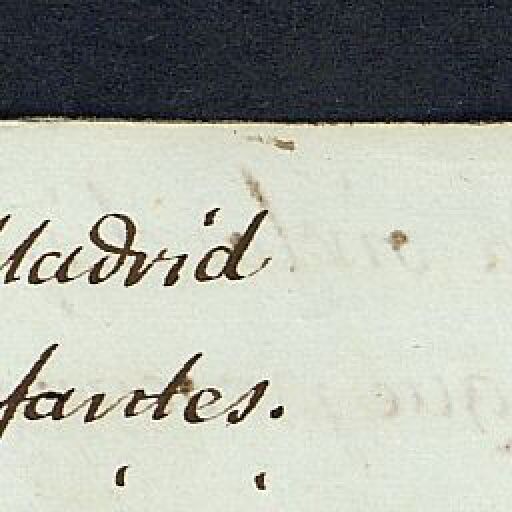 Madrid
fantes.